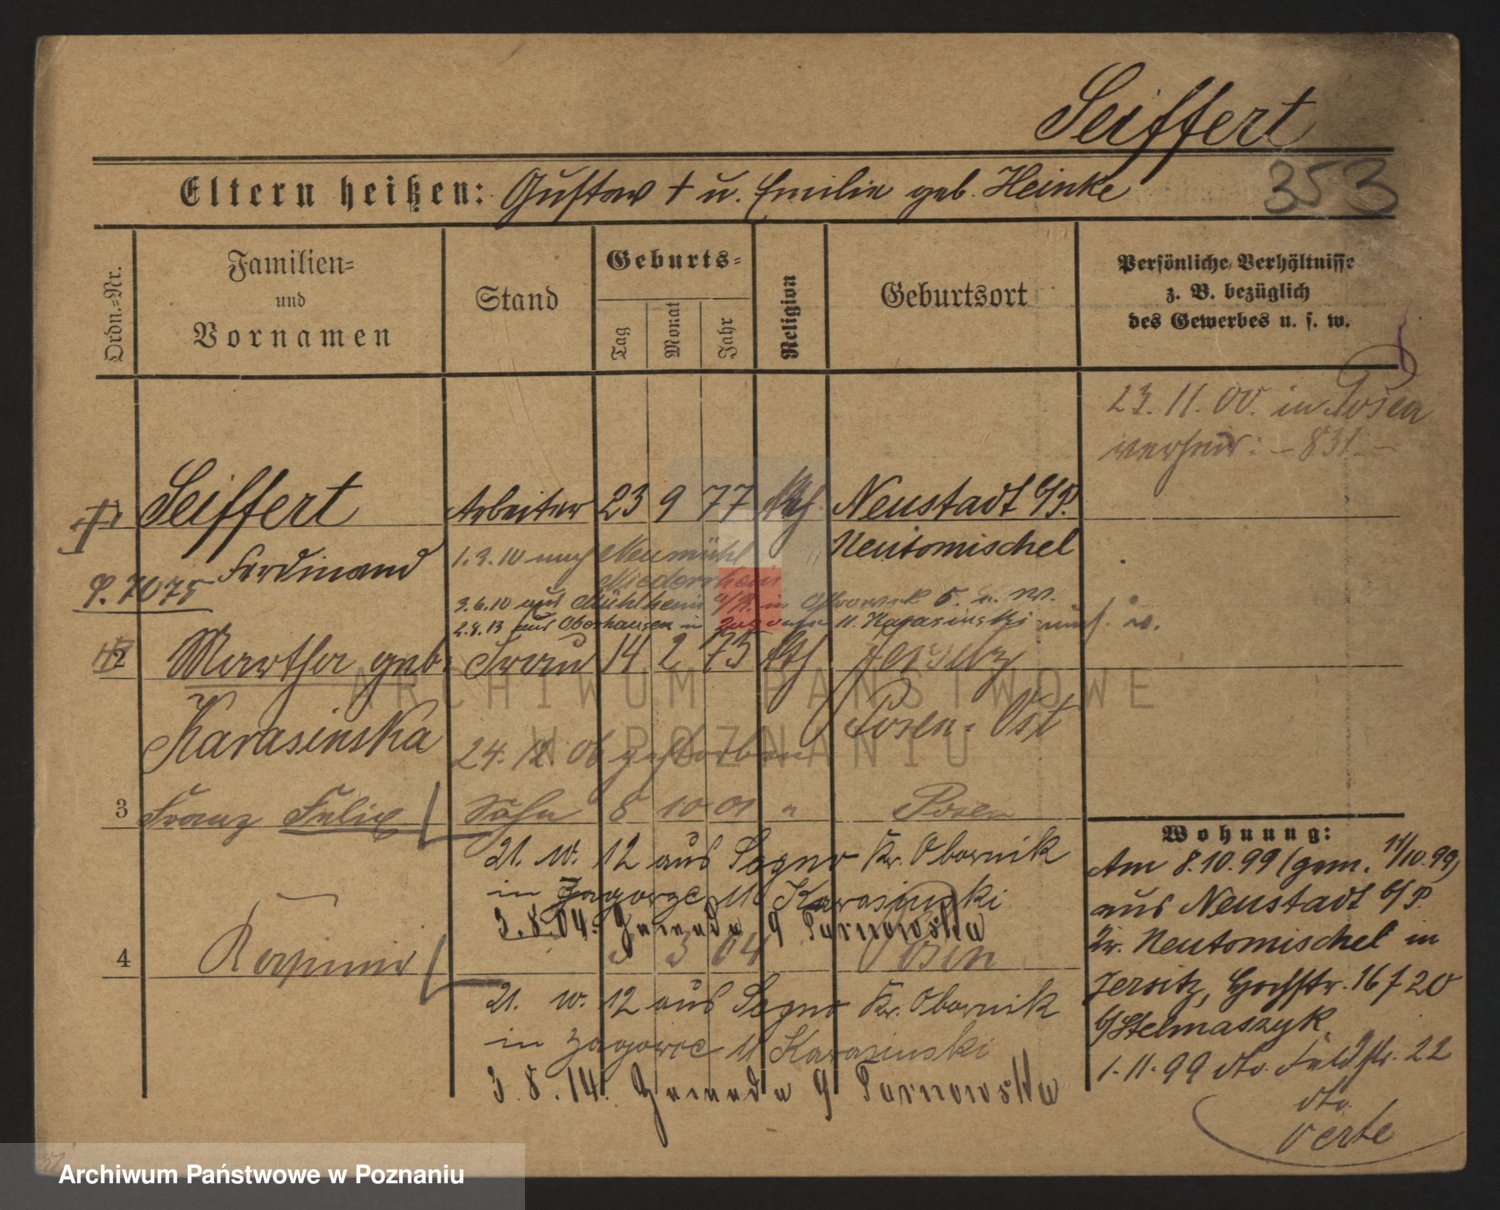 Seiffert
Eltern heißen: Gustav † u. Emilie geb. Heinke
353
Ordn.-Nr.
Familien-
und
Vornamen
Stand
Geburts-
Tag
Monat
Jahr
Religion
Geburtsort
Persönliche Verhältnisse
z. B. bezüglich
des Gewerbes u. s. w.
23. 11. 00. in Posen
verheir: - 831 -
1 Seiffert Arbeiter 23 9 77 kth. Neustadt b/P.
Ferdinand
Neutomischel
1.3.10 nach Neumühl
Niederrhein
P. 7075
3.6.10 aus Mühlheim a/R. in
2.9.13 aus Oberhausen in Karasinski
2 Martha geb. Frau 14 2 75 kth Jersitz
Karasinska
Posen-Ost
24. 12. 06 gestorben
3 Franz Felix Sohn 8 10 01 " Posen
21. 10. 12 aus Kr. Obornik
in Zagorze Karasinski
3.8.04. 9 Tarnowska
4 3 04 Posen
21. 10. 12 aus Kr. Obornik
in Zagorze Karasinski
3.8.14. 9 Tarnowska
Wohnung:
Am 8.10.99 (gem. 11/10.99)
aus Neustadt b/P
Kr. Neutomischel in
Jersitz, Hochstr. 16 f 20
b/Stelmaszyk.
1.11.99 dto. Feldstr. 22
dto.
ARCHIWUM PAŃSTWOWE
W POZNANIU
Archiwum Państwowe w Poznaniu